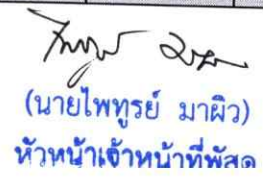 (นายไพฑูรย์ มาผิว)
หัวหน้าเจ้าหน้าที่พัสดุ